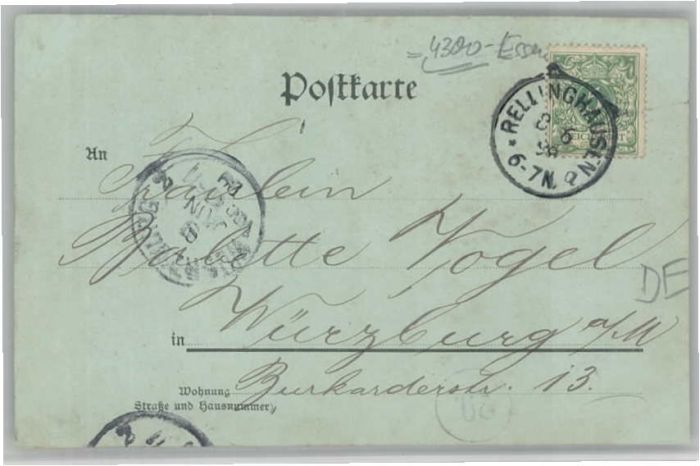 4300 - Essen
Postkarte
RELLINGHAUSEN
8 6
98
6-7N.
An
Fräulein
Babette Vogel
DE
in Würzburg a/M
Wohnung
Straße und Hausnummer
Burkarderstr. 13.